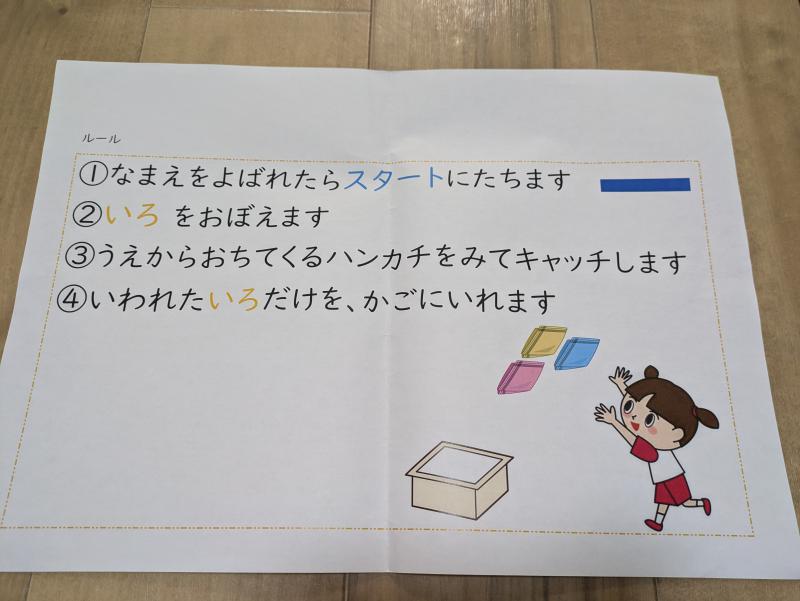 ルール
①なまえをよばれたらスタートにたちます
②いろ をおぼえます
③うえからおちてくるハンカチをみてキャッチします
④いわれたいろだけを、かごにいれます